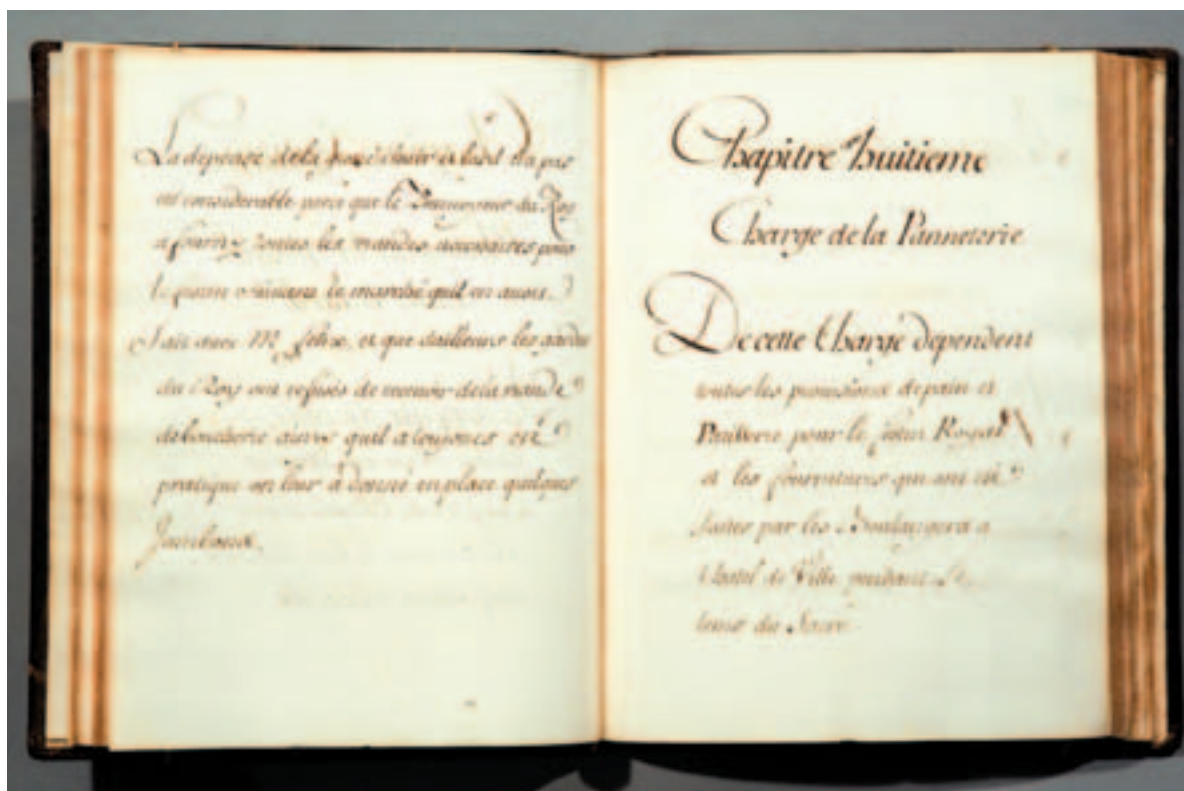 La depense de la grosse chair et lard n'a pas
eté considerable parce que le Pourvoieur du Roy
a fourny toutes les viandes necessaires pour
le festin suivant le marché quil en avoit
fait avec Mr. felix, et que dailleurs les gardes
du Roy ont refusés de recevoir de la viande
de boucherie ainsy quil a toujours eté
pratiqué on leur a donné en place quelques
Jambons.
Chapitre huitieme
Charge de la Panneterie
De cette Charge dependent
toutes les provisions de pain et
Patisserie pour le festin Royal
et les fournitures qui ont eté
faites par les Boulangers a
l'hotel de Ville pendant le
tems du Sacre